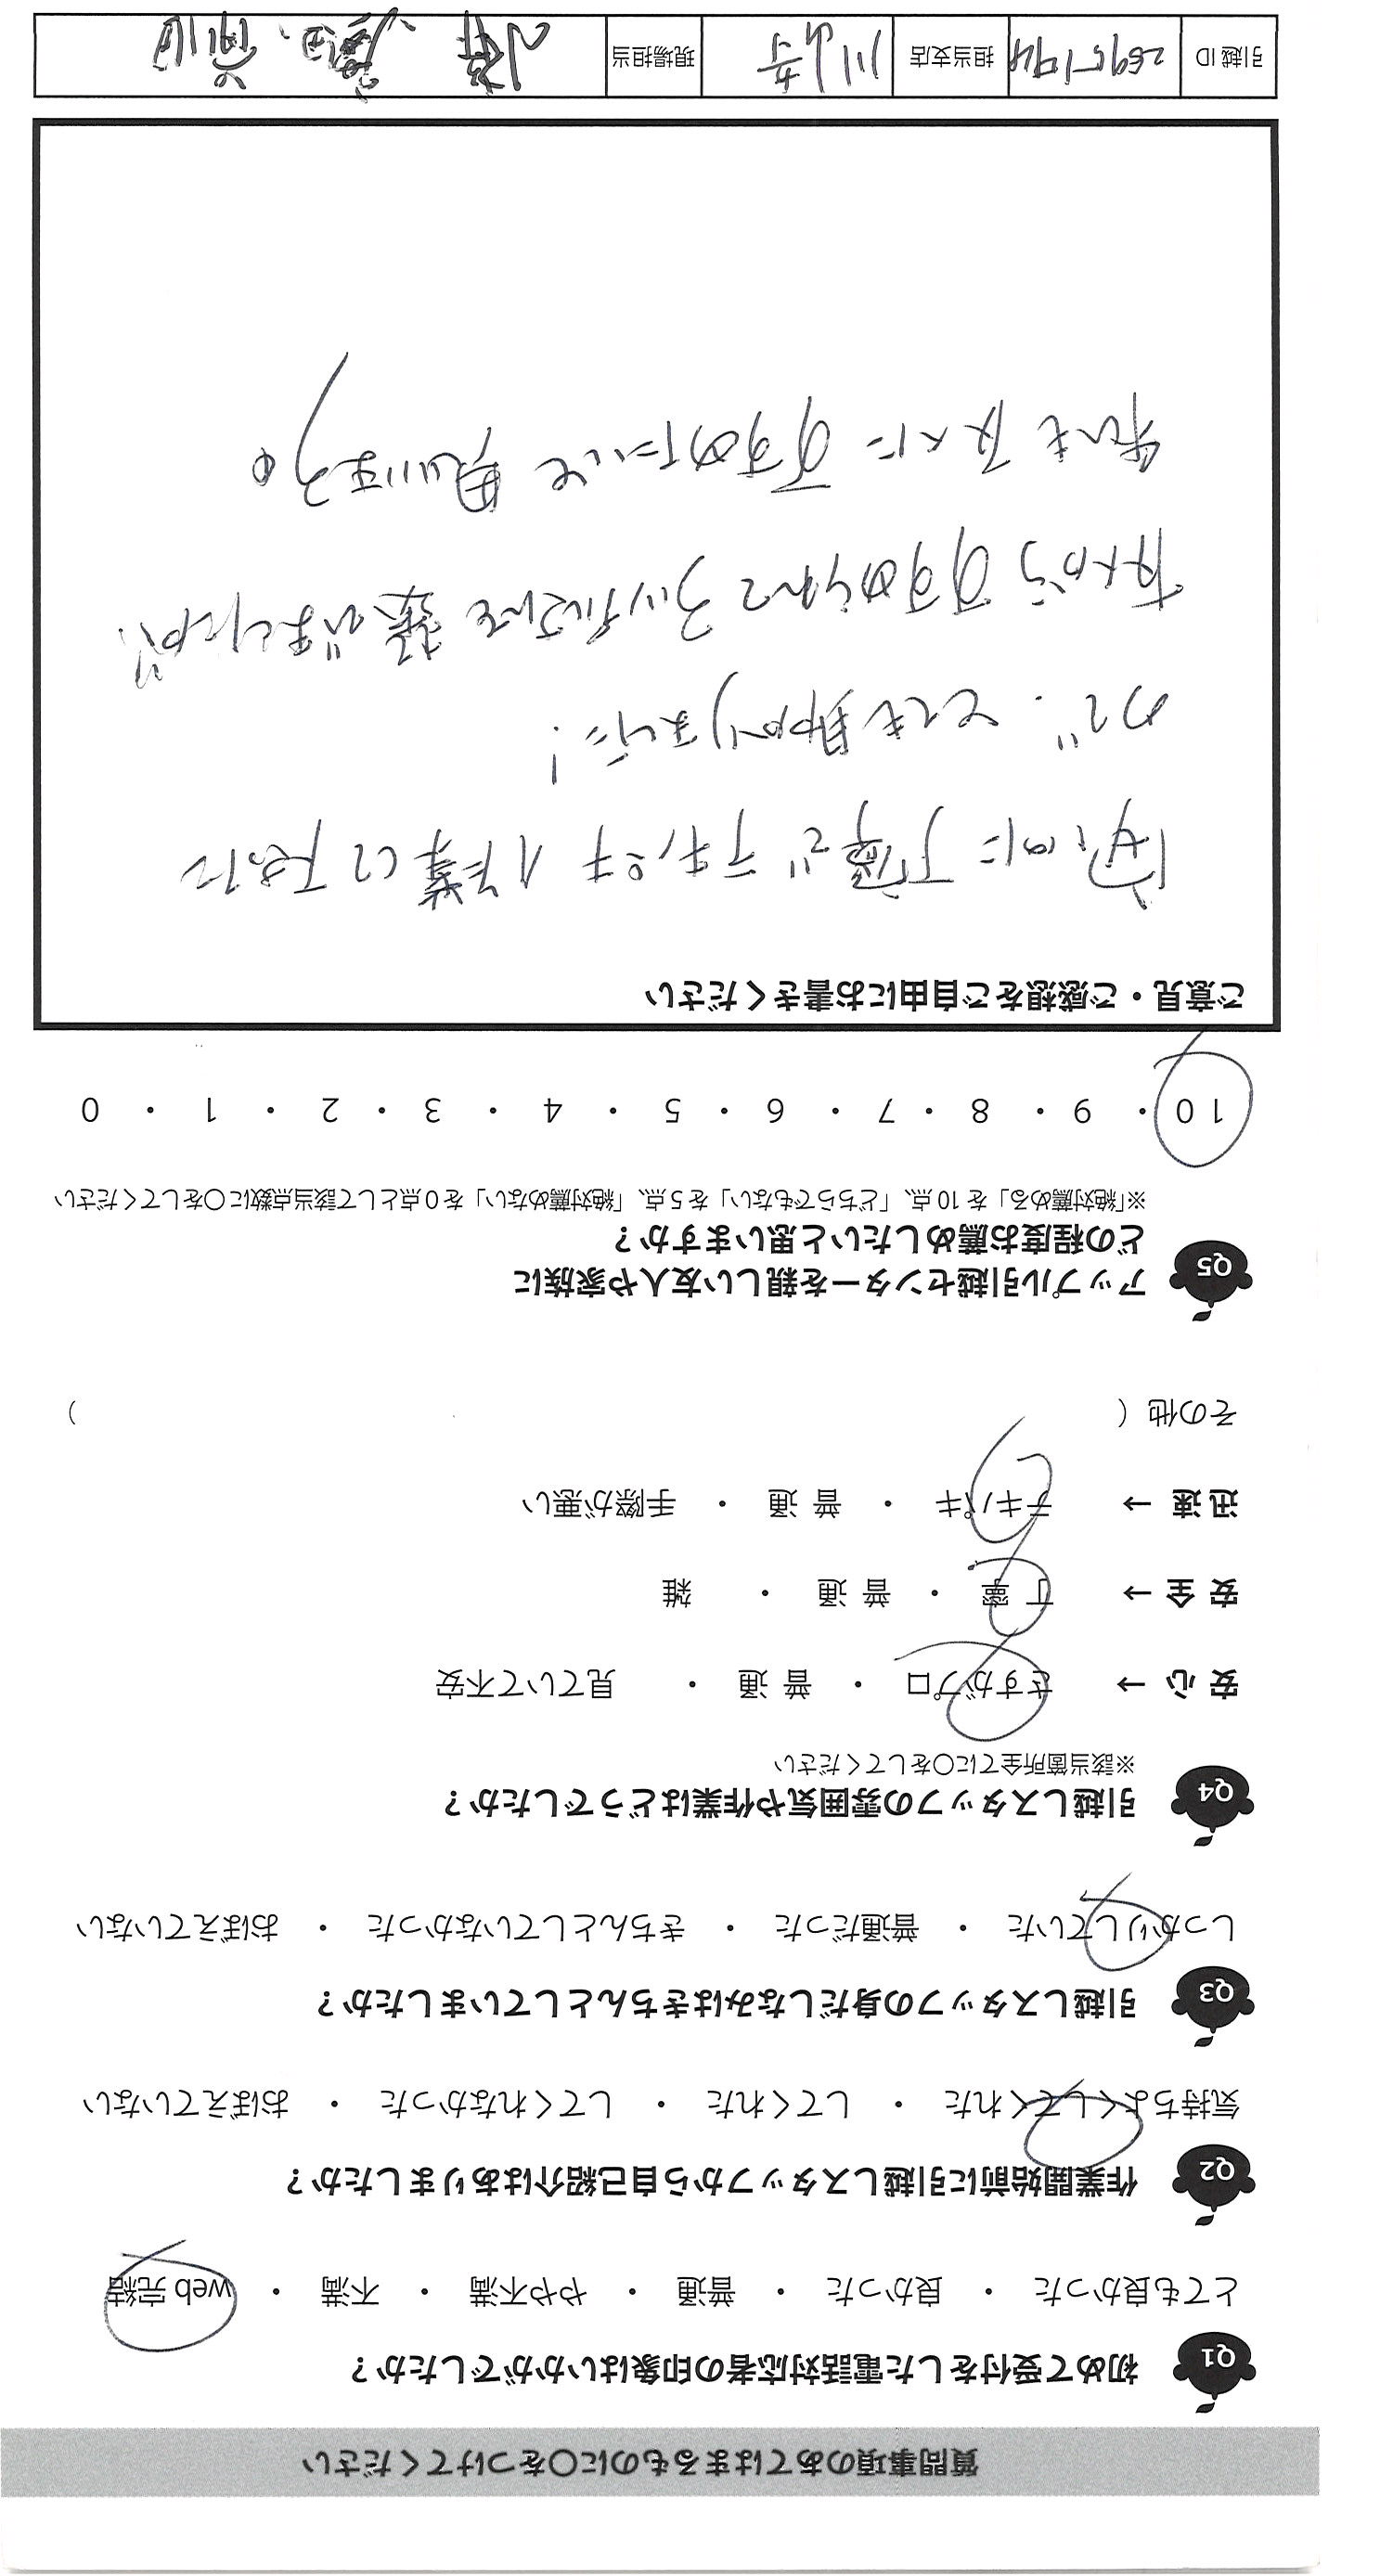 質問事項のあてはまるものに〇をつけてください
Q1 初めて受付をした電話対応者の印象はいかがでしたか？
とても良かった ・ 良かった ・ 普通 ・ やや不満 ・ 不満 ・ web 完結
Q2 作業開始前に引越しスタッフから自己紹介はありましたか？
気持ちよくしてくれた ・ してくれた ・ してくれなかった ・ おぼえていない
Q3 引越しスタッフの身だしなみはきちんとしていましたか？
しっかりしていた ・ 普通だった ・ きちんとしていなかった ・ おぼえていない
Q4 引越しスタッフの雰囲気や作業はどうでしたか？
※該当箇所全てに〇をしてください
安 心 → さすがプロ ・ 普 通 ・ 見ていて不安
安 全 → 丁 寧 ・ 普 通 ・ 雑
迅 速 → テキパキ ・ 普 通 ・ 手際が悪い
その他（ ）
Q5 アップル引越センターを親しい友人や家族に
どの程度お薦めしたいと思いますか？
※「絶対薦める」を 10 点、「どちらでもない」を 5 点、「絶対薦めない」を 0 点として該当点数に〇をしてください
10 ・ 9 ・ 8 ・ 7 ・ 6 ・ 5 ・ 4 ・ 3 ・ 2 ・ 1 ・ 0
ご意見・ご感想をご自由にお書きください
に丁寧でテキパキ作業して下さった
ので、とても助かりました！
友人からすすめられてアップルさんを選びましたが、
私も友人にすすめたいと思います。
引越 ID 2695194 担当支店 現場担当